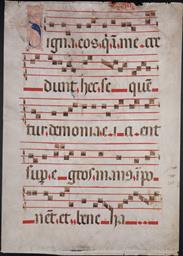 Signa eos, q̄ i me cre
dunt hec se quē
tur: demonia e i ci ent
sup e gros manꝰ īpo
nēt et bene ha